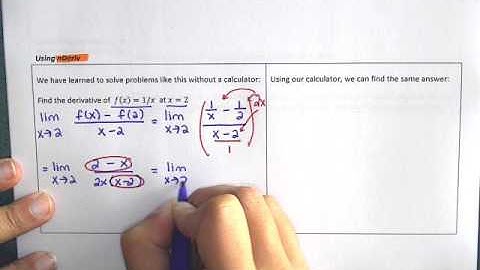 Using nDeriv
We have learned to solve problems like this without a calculator:
Find the derivative of f(x) = 3/x at x = 2
lim x→2 f(x) - f(2) / x - 2 = lim x→2 ( 1/x - 1/2 / x - 2 / 1 ) 2x
= lim x→2 2 - x / 2x (x - 2) = lim x→2
Using our calculator, we can find the same answer: